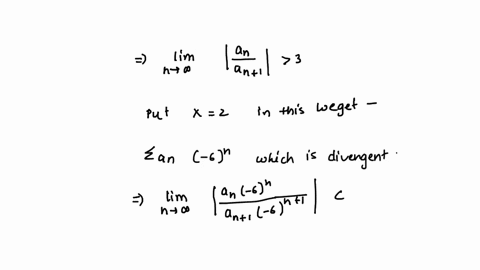 => lim n→∞ |an / an+1| > 3
Put x = 2 In this weget -
Σan (-6)^n which is divergent.
=> lim n→∞ |an (-6)^n / an+1 (-6)^n+1| C